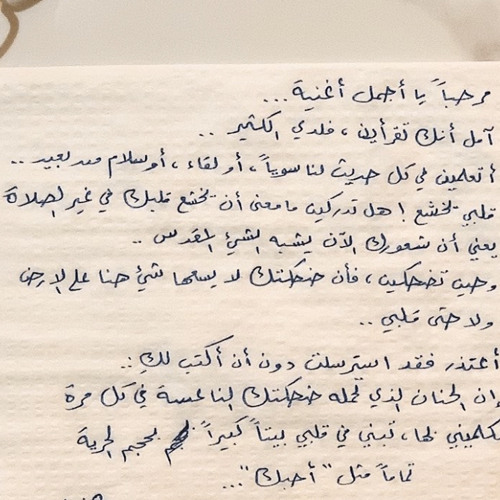 مرحباً يا أجمل أغنية...
آمل أنك تقرأين، فلدي الكثير ..
أتعلمين في كل حديث لنا سوياً، أو لقاء، أو سلام من بعيد ..
قلبي يخشع! هل تدركين ما معنى أن يخشع قلبك في غير الصلاة
يعني أن شعورك الآن يشبه الشيء المقدس ..
وحين تضحكين، فأن ضحكتك لا يسعها شيء هنا على الارض
ولا حتى قلبي ..
أعتذر فقد استرسلت دون أن أكتب لكِ :.
ان الحنان الذي تحمله ضحكتك الناعسة في كل مرة
تكلميني بها، تبني في قلبي بيتاً كبيراً بحجم الحرية
تماماً مثل "أحبك"...